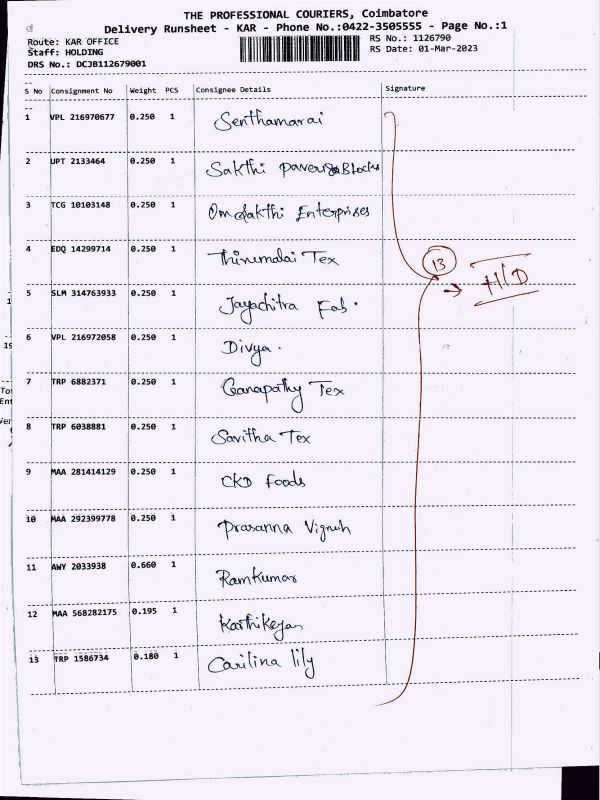 THE PROFESSIONAL COURIERS, Coimbatore
Delivery Runsheet - KAR - Phone No.:0422-3505555 - Page No.:1
Route: KAR OFFICE RS No.: 1126790
Staff: HOLDING RS Date: 01-Mar-2023
DRS No.: DCJB112679001
S No Consignment No Weight PCS Consignee Details Signature
1 VPL 216970677 0.250 1 Senthamarai
2 UPT 2133464 0.250 1 Sakthi Paver Blocks
3 TCG 10103148 0.250 1 Om Sakthi Enterprises
4 EDQ 14299714 0.250 1 Thirumalai Tex
13
→ H/D
5 SLM 314763933 0.250 1 Jayachitra Fab.
6 VPL 216972058 0.250 1 Divya.
7 TRP 6882371 0.250 1 Ganapathy Tex
8 TRP 6038881 0.250 1 Savitha Tex
9 MAA 281414129 0.250 1 CKD Foods
10 MAA 292399778 0.250 1 Prasanna Vignesh
11 AWY 2033938 0.660 1 Ramkumar
12 MAA 568282175 0.195 1 Karthikeyan
13 TRP 1586734 0.180 1 Carilina lily